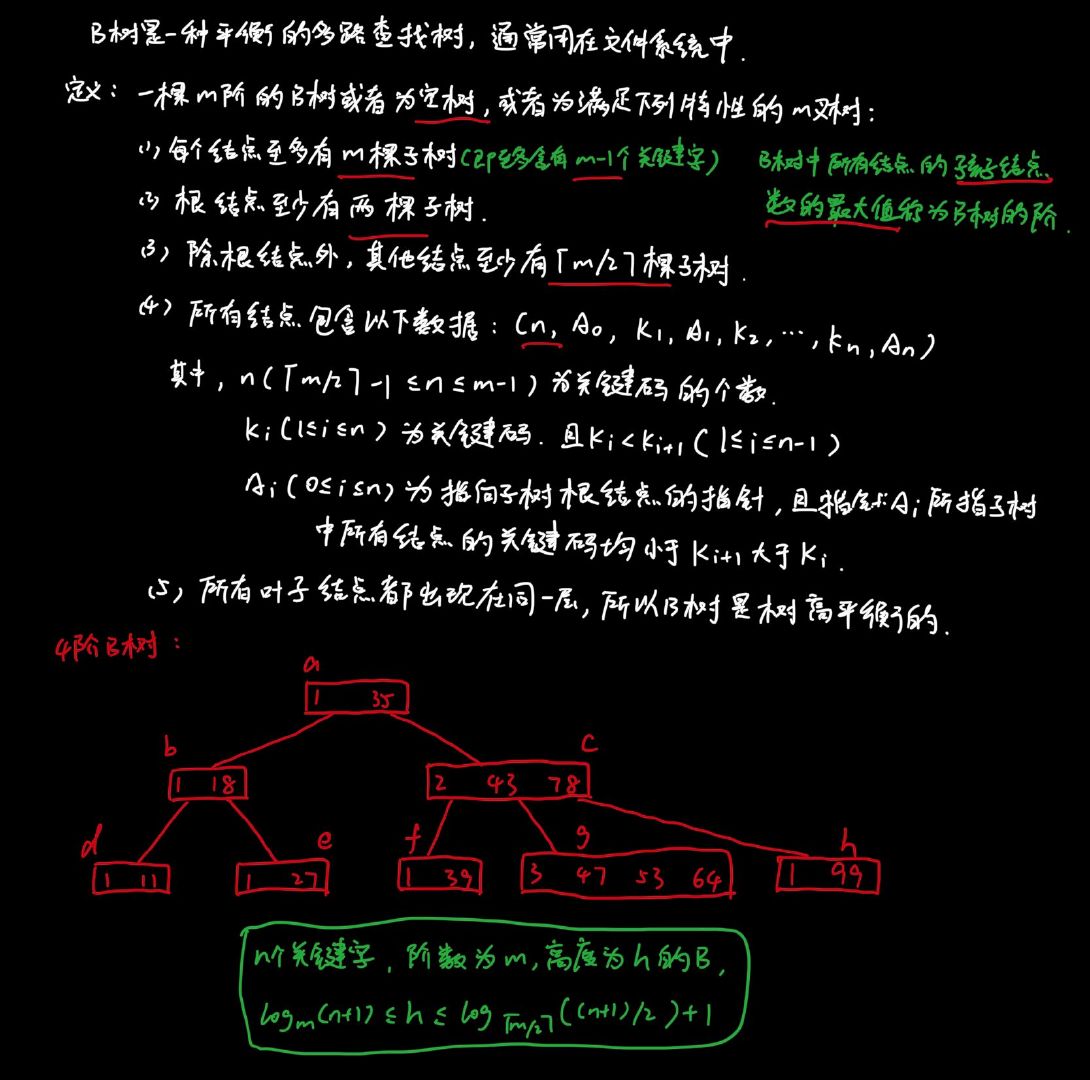 B树是一种平衡的多路查找树，通常用在文件系统中.
定义：一棵m阶的B树或者为空树，或者为满足下列特性的m叉树：
(1) 每个结点至多有m棵子树(即至多含有m-1个关键字)
B树中所有结点的孩子结点
数的最大值称为B树的阶.
(2) 根结点至少有两棵子树.
(3) 除根结点外，其他结点至少有⌈m/2⌉棵子树.
(4) 所有结点包含以下数据：(n, A₀, K₁, A₁, K₂, …, Kn, An)
其中，n(⌈m/2⌉-1≤n≤m-1)为关键码的个数.
Ki(1≤i≤n)为关键码.且Ki<Ki+1(1≤i≤n-1)
Ai(0≤i≤n)为指向子树根结点的指针，且指针Ai所指子树
中所有结点的关键码均小于Ki+1大于Ki.
(5) 所有叶子结点都出现在同一层，所以B树是树高平衡的.
4阶B树：
a
1 35
b
c
1 18
2 43 78
d
e
f
g
h
1 11
1 27
1 39
3 47 53 64
1 99
n个关键字，阶数为m，高度为h的B，
logm(n+1)≤h≤log⌈m/2⌉((n+1)/2)+1